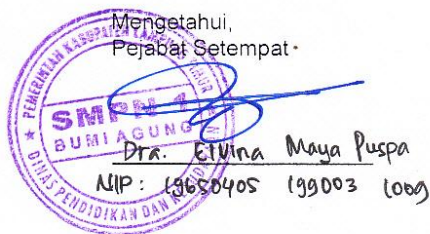 Mengetahui,
Pejabat Setempat
PEMERINTAH KABUPATEN LAMPUNG TIMUR
SMPN 1
BUMI AGUNG
DINAS PENDIDIKAN DAN
Dra. Elvina Maya Puspa
NIP : 19650405 199003 1009